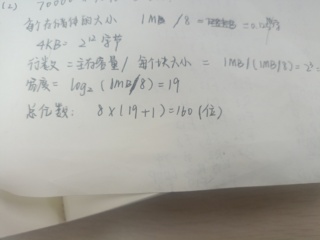 (2)
每个存储体的大小 1MB / 8 =
4KB = 2¹² 字节
行数 = 主存容量 / 每个块大小 = 1MB / (1MB/8) = 2³
宽度 = log₂ (1MB/8) = 19
总位数: 8 × (19 + 1) = 160 (位)